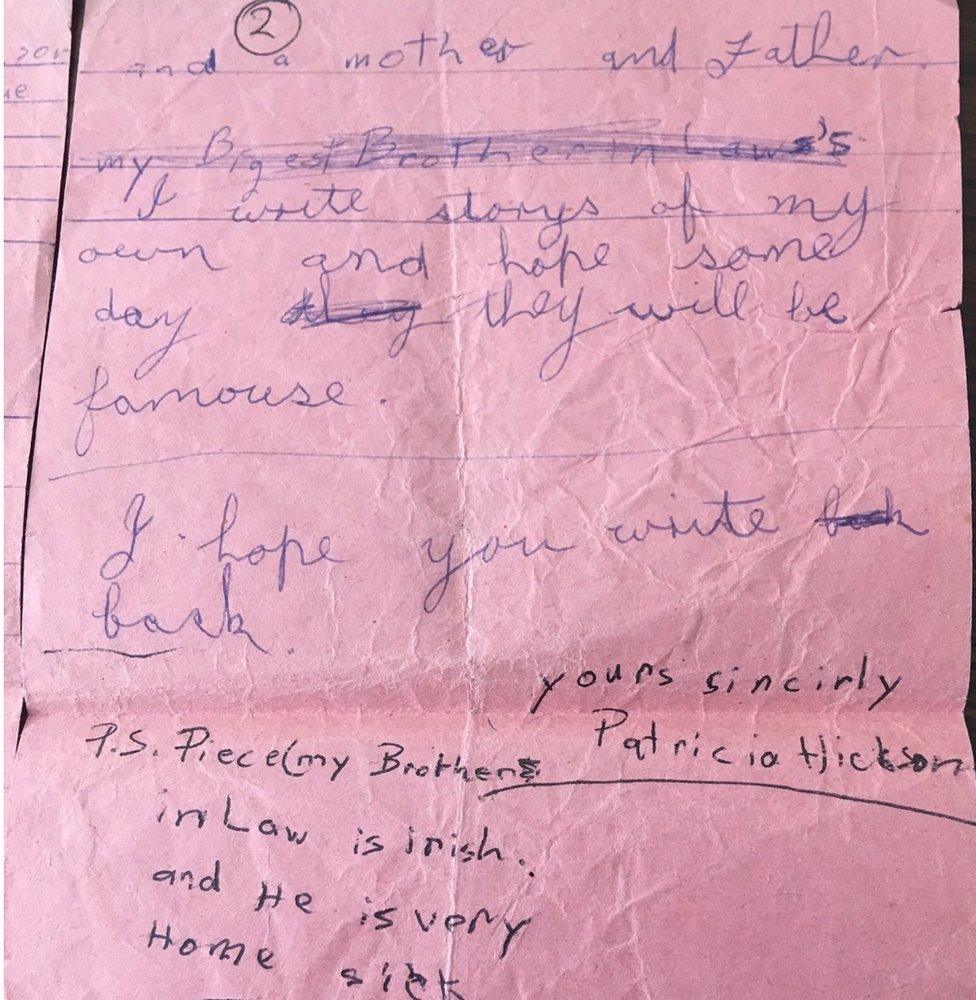 2
and a mother and Father.
my Bigest Brother in Laws's
I write storys of my
own and hope some
day they they will be
famouse.
I hope you write back
back.
yours sincirly
Patricia Hickson
P.S. Piece(my Brothers
in Law is irish.
and He is very
Home sick